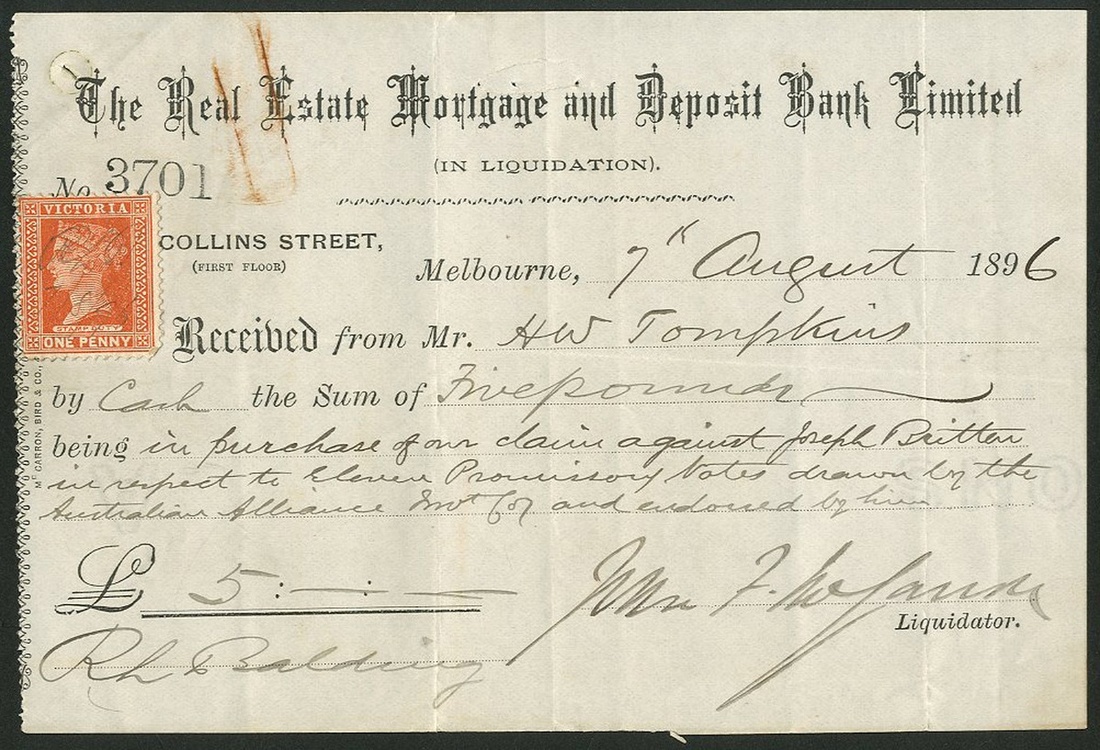 The Real Estate Mortgage and Deposit Bank Limited
(IN LIQUIDATION).
No. 3701
VICTORIA
STAMP DUTY
ONE PENNY
COLLINS STREET,
(FIRST FLOOR)
Melbourne, 7th August 1896
Received from Mr. HW Tompkins
by Cash the Sum of Five pounds
being in purchase of our claim against Joseph Britten
in respect to Eleven Promissory Notes drawn by the
Australian Alliance Invt Coy and endorsed by him
£ 5 : — : —
Liquidator.
R L Balding
McCARRON, BIRD & CO.,